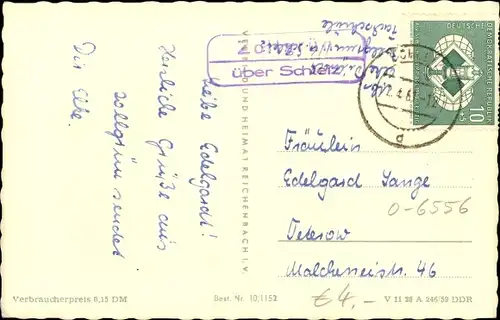 Liebe Edelgard!
Herzliche Grüße aus
Zollgrün sendet
Dir Elke.
über Schleiz
DEUTSCHE DEMOKRATISCHE REPUBLIK
10+5
Fräulein
Edelgard Lange
Teterow
Malchinerstr. 46
0-6556
€4,-
VERLAG BILD UND HEIMAT REICHENBACH I. V.
Verbraucherpreis 0,15 DM
Best. Nr. 10/1152
V 11 28 A 246/59 DDR